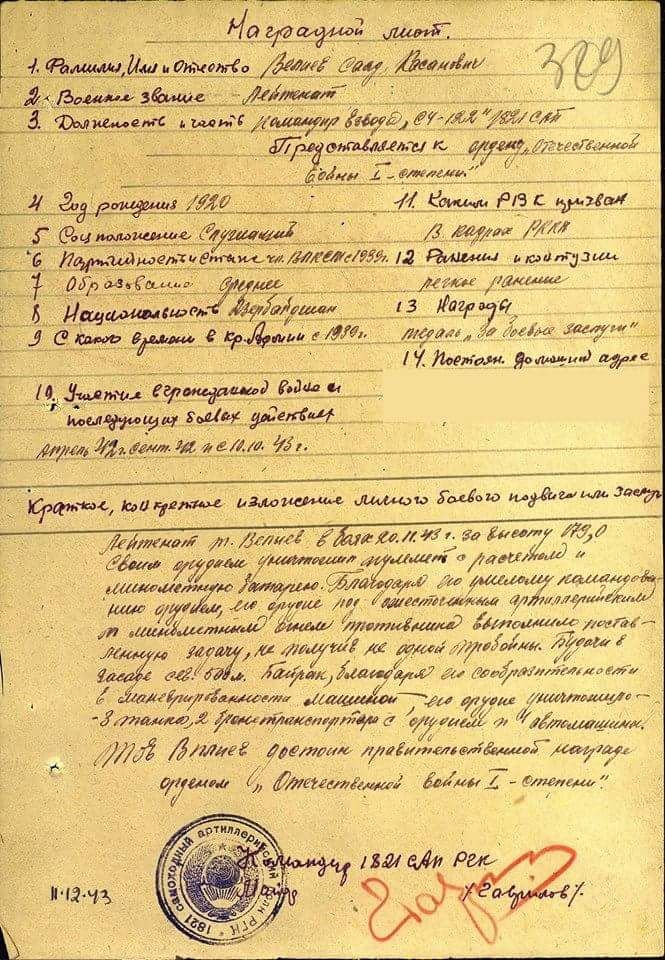 Наградной лист.
329
1. Фамилия, Имя и Отчество Велиев Саид Касанович
2. Военное звание Лейтенант
3. Должность и часть командир взвода „СУ-122" 1821 САП
Представляется к ордену „Отечественной
войны I-степени"
4 Год рождения 1920
5 Соц положение Служащий
6 Партийность и стаж чл. ВЛКСМ с 1939г.
7 Образование среднее
8 Национальность Азербайджан
9 С какого времени в кр. Армии с 1939г.
10. Участие в гражданской войне и
последующих боевых действиях
Апрель 42г. Сент. 42 и с 10.10.43г.
11. Каким РВК призван
В кадрах РККА
12 Ранения и контузии
легкое ранение
13 Награды
медаль „За боевые заслуги"
14. Постоян. домашний адрес
Краткое, конкретное изложение личного боевого подвига или заслуг
Лейтенант т. Велиев в боях 20.11.43 г. за высоту 173,0
своим орудием уничтожил пулемет с расчетом и
минометную батарею. Благодаря его умелому командова-
нию орудием, его орудие под ожесточенным артиллерийским
и минометным огнем противника выполнило постав-
ленную задачу, не получив не одной пробоины. Будучи в
засаде сев. 500м. Байрак, благодаря его сообразительности
в маневрированности машиной его орудие уничтожило-
3 танка, 2 бронетранспортера с орудием и автомашина.
Тов Велиев достоин правительственной награде
орденом „Отечественной войны I-степени".
Командир 1821 САП РГК
Майор /Гаврилов/.
11.12.43
1821 самоходный артиллерийский РГК